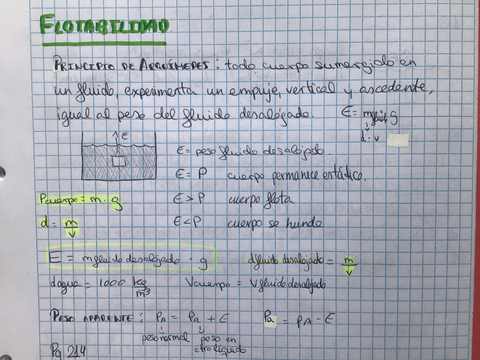 FLOTABILIDAD
PRINCIPIO DE ARQUÍMEDES: todo cuerpo sumergido en
un fluido, experimenta un empuje, vertical y ascedente,
igual al peso del fluido desalojado. E = mfluido·g
d·v
↑E
E = peso fluido desalojado
E = P cuerpo permanece estático.
Pcuerpo = m·g E > P cuerpo flota
d = m/V E < P cuerpo se hunde
E = mfluido desalojado · g dfluido desalojado = m/V
dagua = 1000 kg/m³ Vcuerpo = Vfluido desalojado
PESO APARENTE: PA = Pa + E Pa = PA - E
peso normal peso en
otro líquido
Pg 214